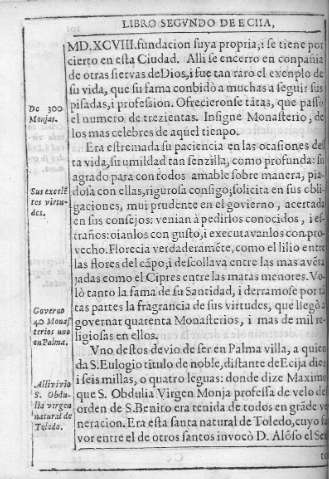 LIBRO SEGVNDO DE ECIIA,
MD.XCVIII. fundacion suya propria, i se tiene por
cierto en esta Ciudad. Alli se encerro en conpañia
de otras siervas de Dios, i fue tan raro el exenplo de
su vida, que su fama conbidò a muchas a seguir sus
pisadas, i profesion. Ofrecieronse tãtas, que passò
el numero de trezientas. Insigne Monasterio, de
los mas celebres de aquel tienpo.
De 300
Monjas.
Era estremada su paciencia en las ocasiones des
ta vida, su umildad tan senzilla, como profunda: su
agrado para con todos amable sobre manera, pia-
dosa con ellas, rigurosa consigo, solicita en sus obli-
gaciones, mui prudente en el govierno, acertada
en sus consejos: venian à pedirlos conocidos, i es-
traños: oianlos con gusto, i executavanlos con pro-
vecho. Florecia verdaderamẽte, como el lilio entre
las flores del cãpo, i descollava entre las mas avẽta
jadas como el Cipres entre las matas menores. Vo-
lò tanto la fama de su Santidad, i derramose por tã
tas partes la fragrancia de sus virtudes, que llegò a
governar quarenta Monasterios, i mas de mil re-
ligiosas en ellos.
Sus excelẽ
tes virtu-
des.
Governo
40 Monas
terios uno
en Palma.
Uno destos devio de ser en Palma villa, a quien
da S. Eulogio titulo de noble, distante de Ecija diez
i seis millas, o quatro leguas: donde dize Maximo
que S. Obdulia Virgen Monja professa de velo del
orden de S. Benito era tenida de todos en grãde ve
neracion. Era esta santa natural de Toledo, cuyo fa
vor entre el de otros santos invocò D. Alõso el Sex
Alli vivio
S. Obdu-
lia virgen
natural de
Toledo.
to